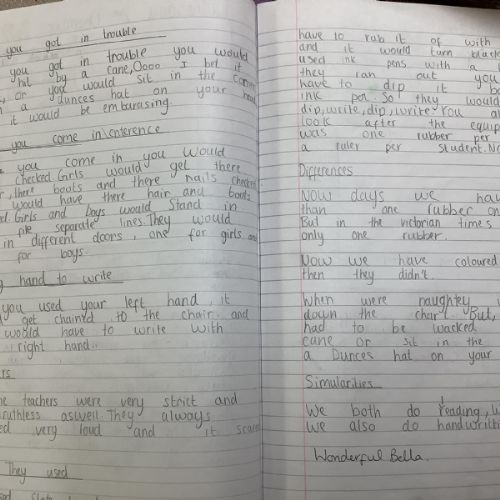 you got in trouble
you got in trouble you would
hit by a cane, Oooo I bet it
or you would sit in the corner
a dunces hat on your head
it would be emburasing.
you come in\enterence
you come in you would
checked. Girls would get there
, there boots and there nails checked
would have there hair and boots
. Girls and boys would stand in
separate lines. They would
in different doors, one for girls and
for boys.
hand to write
you used your left hand, it
get chained to the chair and
would have to write with
right hand.
teachers were very strict and
ruthless aswell. They always
very loud and it
They used
have to rub it of with
and it would turn black
used ink pens with a
they ran out you
have to dip it
ink pen. So they would
dip, write, dip, write. You
look after the
was one rubber per
a ruler per student.
Differences
Now days we have
than one rubber
But in the victorian times
only one rubber.
Now we have coloured
then they didn't.
When were naughtey
down the chart. But,
had to be wacked
cane or sit in the
a Dunces hat on your
Simularities
We both do reading,
We also do
Wonderful Bella.